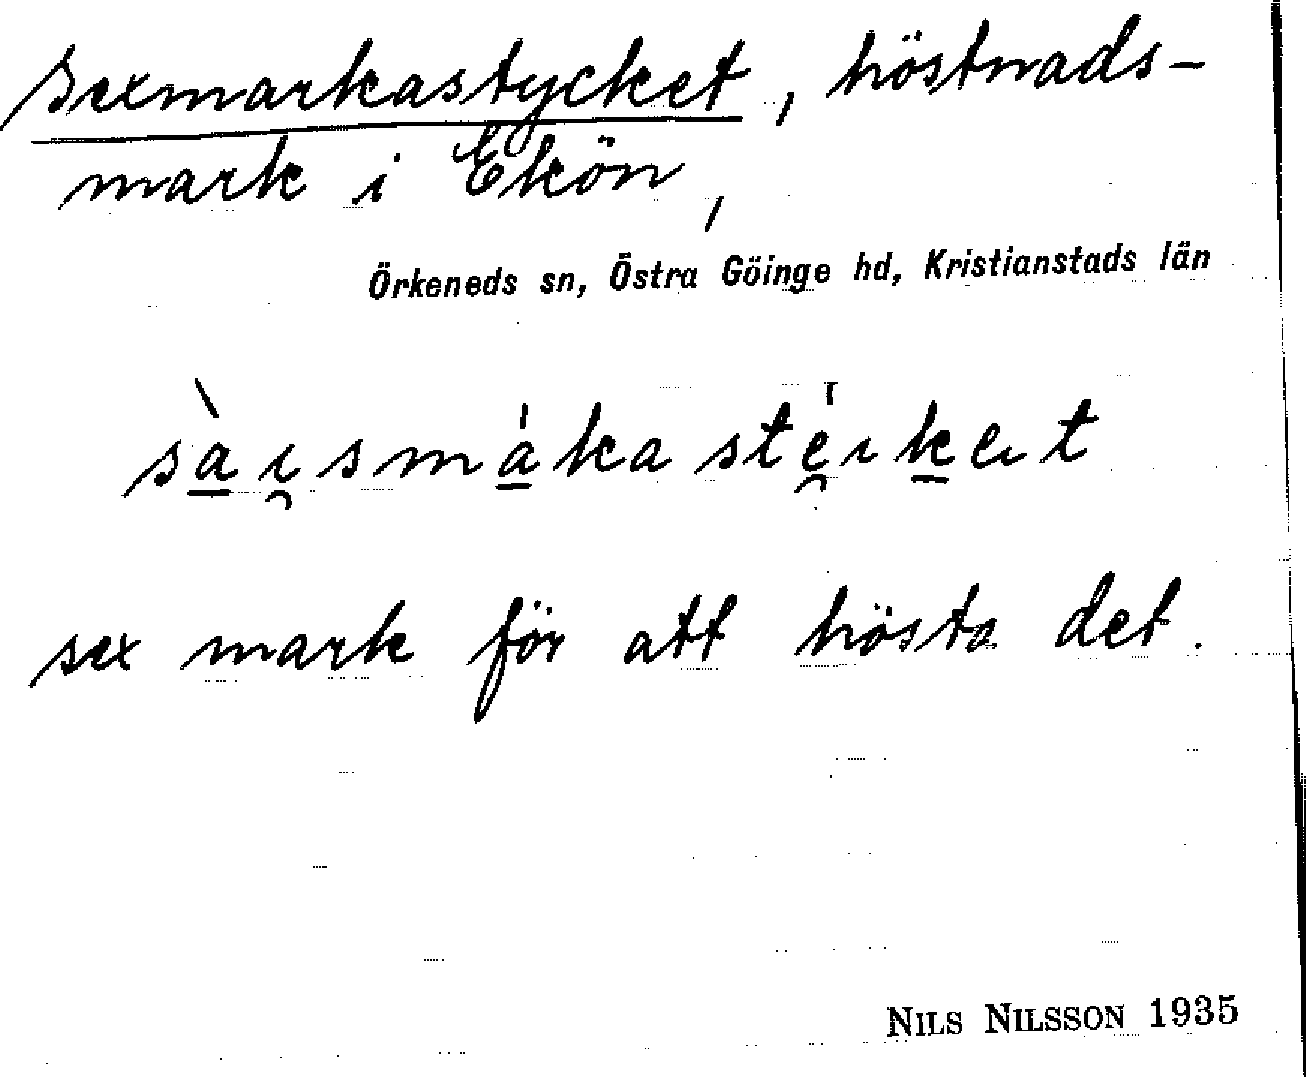 Sexmarkastycket, höstnads-
mark i Ekön,
Örkeneds sn, Östra Göinge hd, Kristianstads län
sàɪ̯smákasté̯ɪket
sex mark för att hösta det.
NILS NILSSON 1935